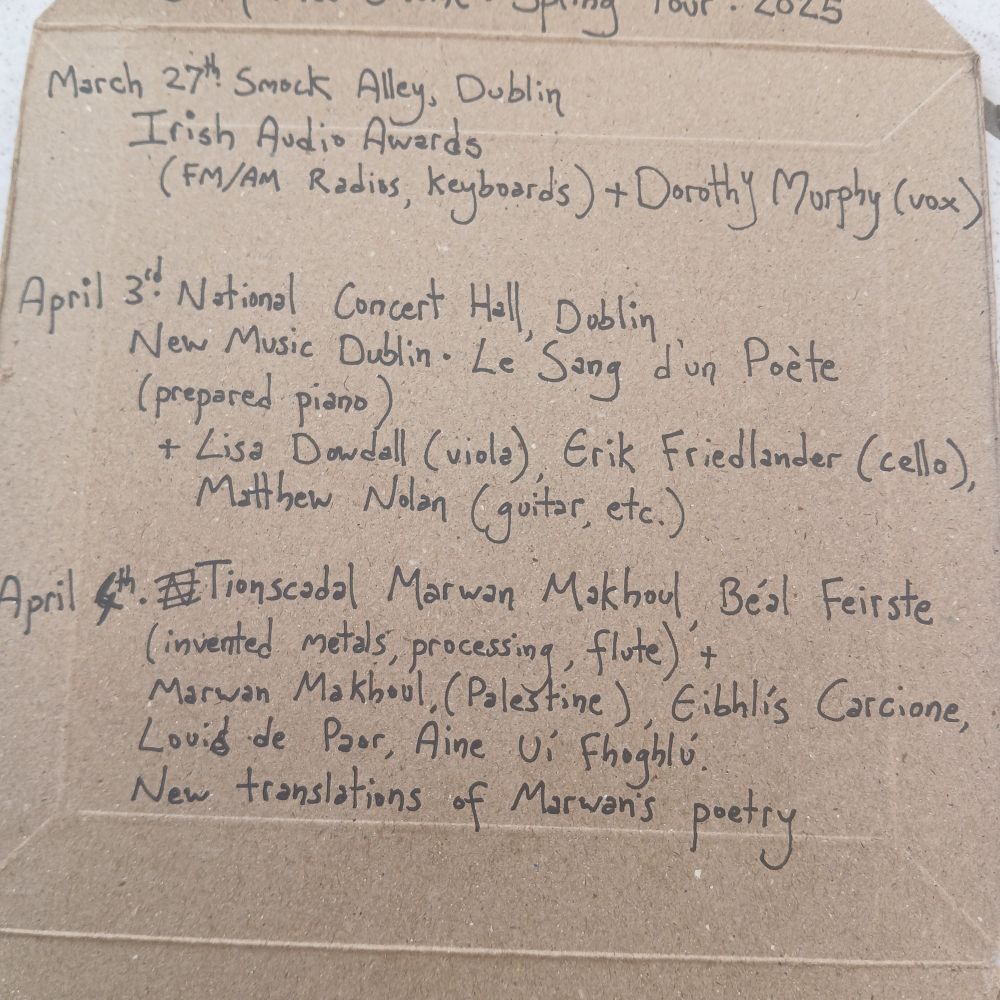 Spring Tour · 2025
March 27th. Smock Alley, Dublin
Irish Audio Awards
(FM/AM Radios, keyboards) + Dorothy Murphy (vox)
April 3rd. National Concert Hall, Dublin
New Music Dublin · Le Sang d'un Poète
(prepared piano)
+ Lisa Dowdall (viola), Erik Friedlander (cello),
Matthew Nolan (guitar, etc.)
April 4th. Tionscadal Marwan Makhoul, Béal Feirste
(invented metals, processing, flute) +
Marwan Makhoul, (Palestine), Eibhlís Carcione,
Louis de Paor, Aine Uí Fhoghlú.
New translations of Marwan's poetry